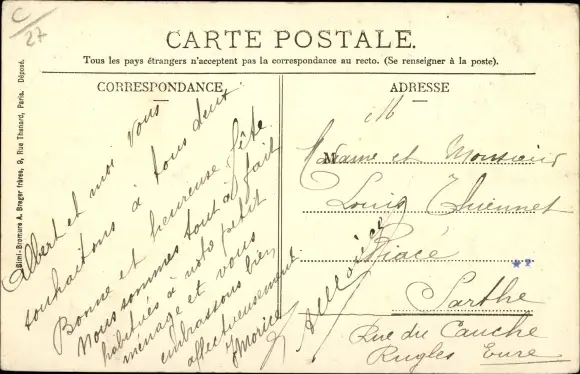 C/27
CARTE POSTALE.
Tous les pays étrangers n'acceptent pas la correspondance au recto. (Se renseigner à la poste).
CORRESPONDANCE
ADRESSE
Simi-Bromure A. Breger frères, 9, Rue Thenard, Paris. Déposé.
Albert et moi vous
souhaitons à tous deux
Bonne et heureuse fête.
Nous sommes tout à fait
habitués à notre petit
ménage et vous
embrassons bien
affectueusement.
M
Madame et Monsieur
Louis Thuennet
Piacé
Sarthe
Rue du Cauche
Rugles Eure